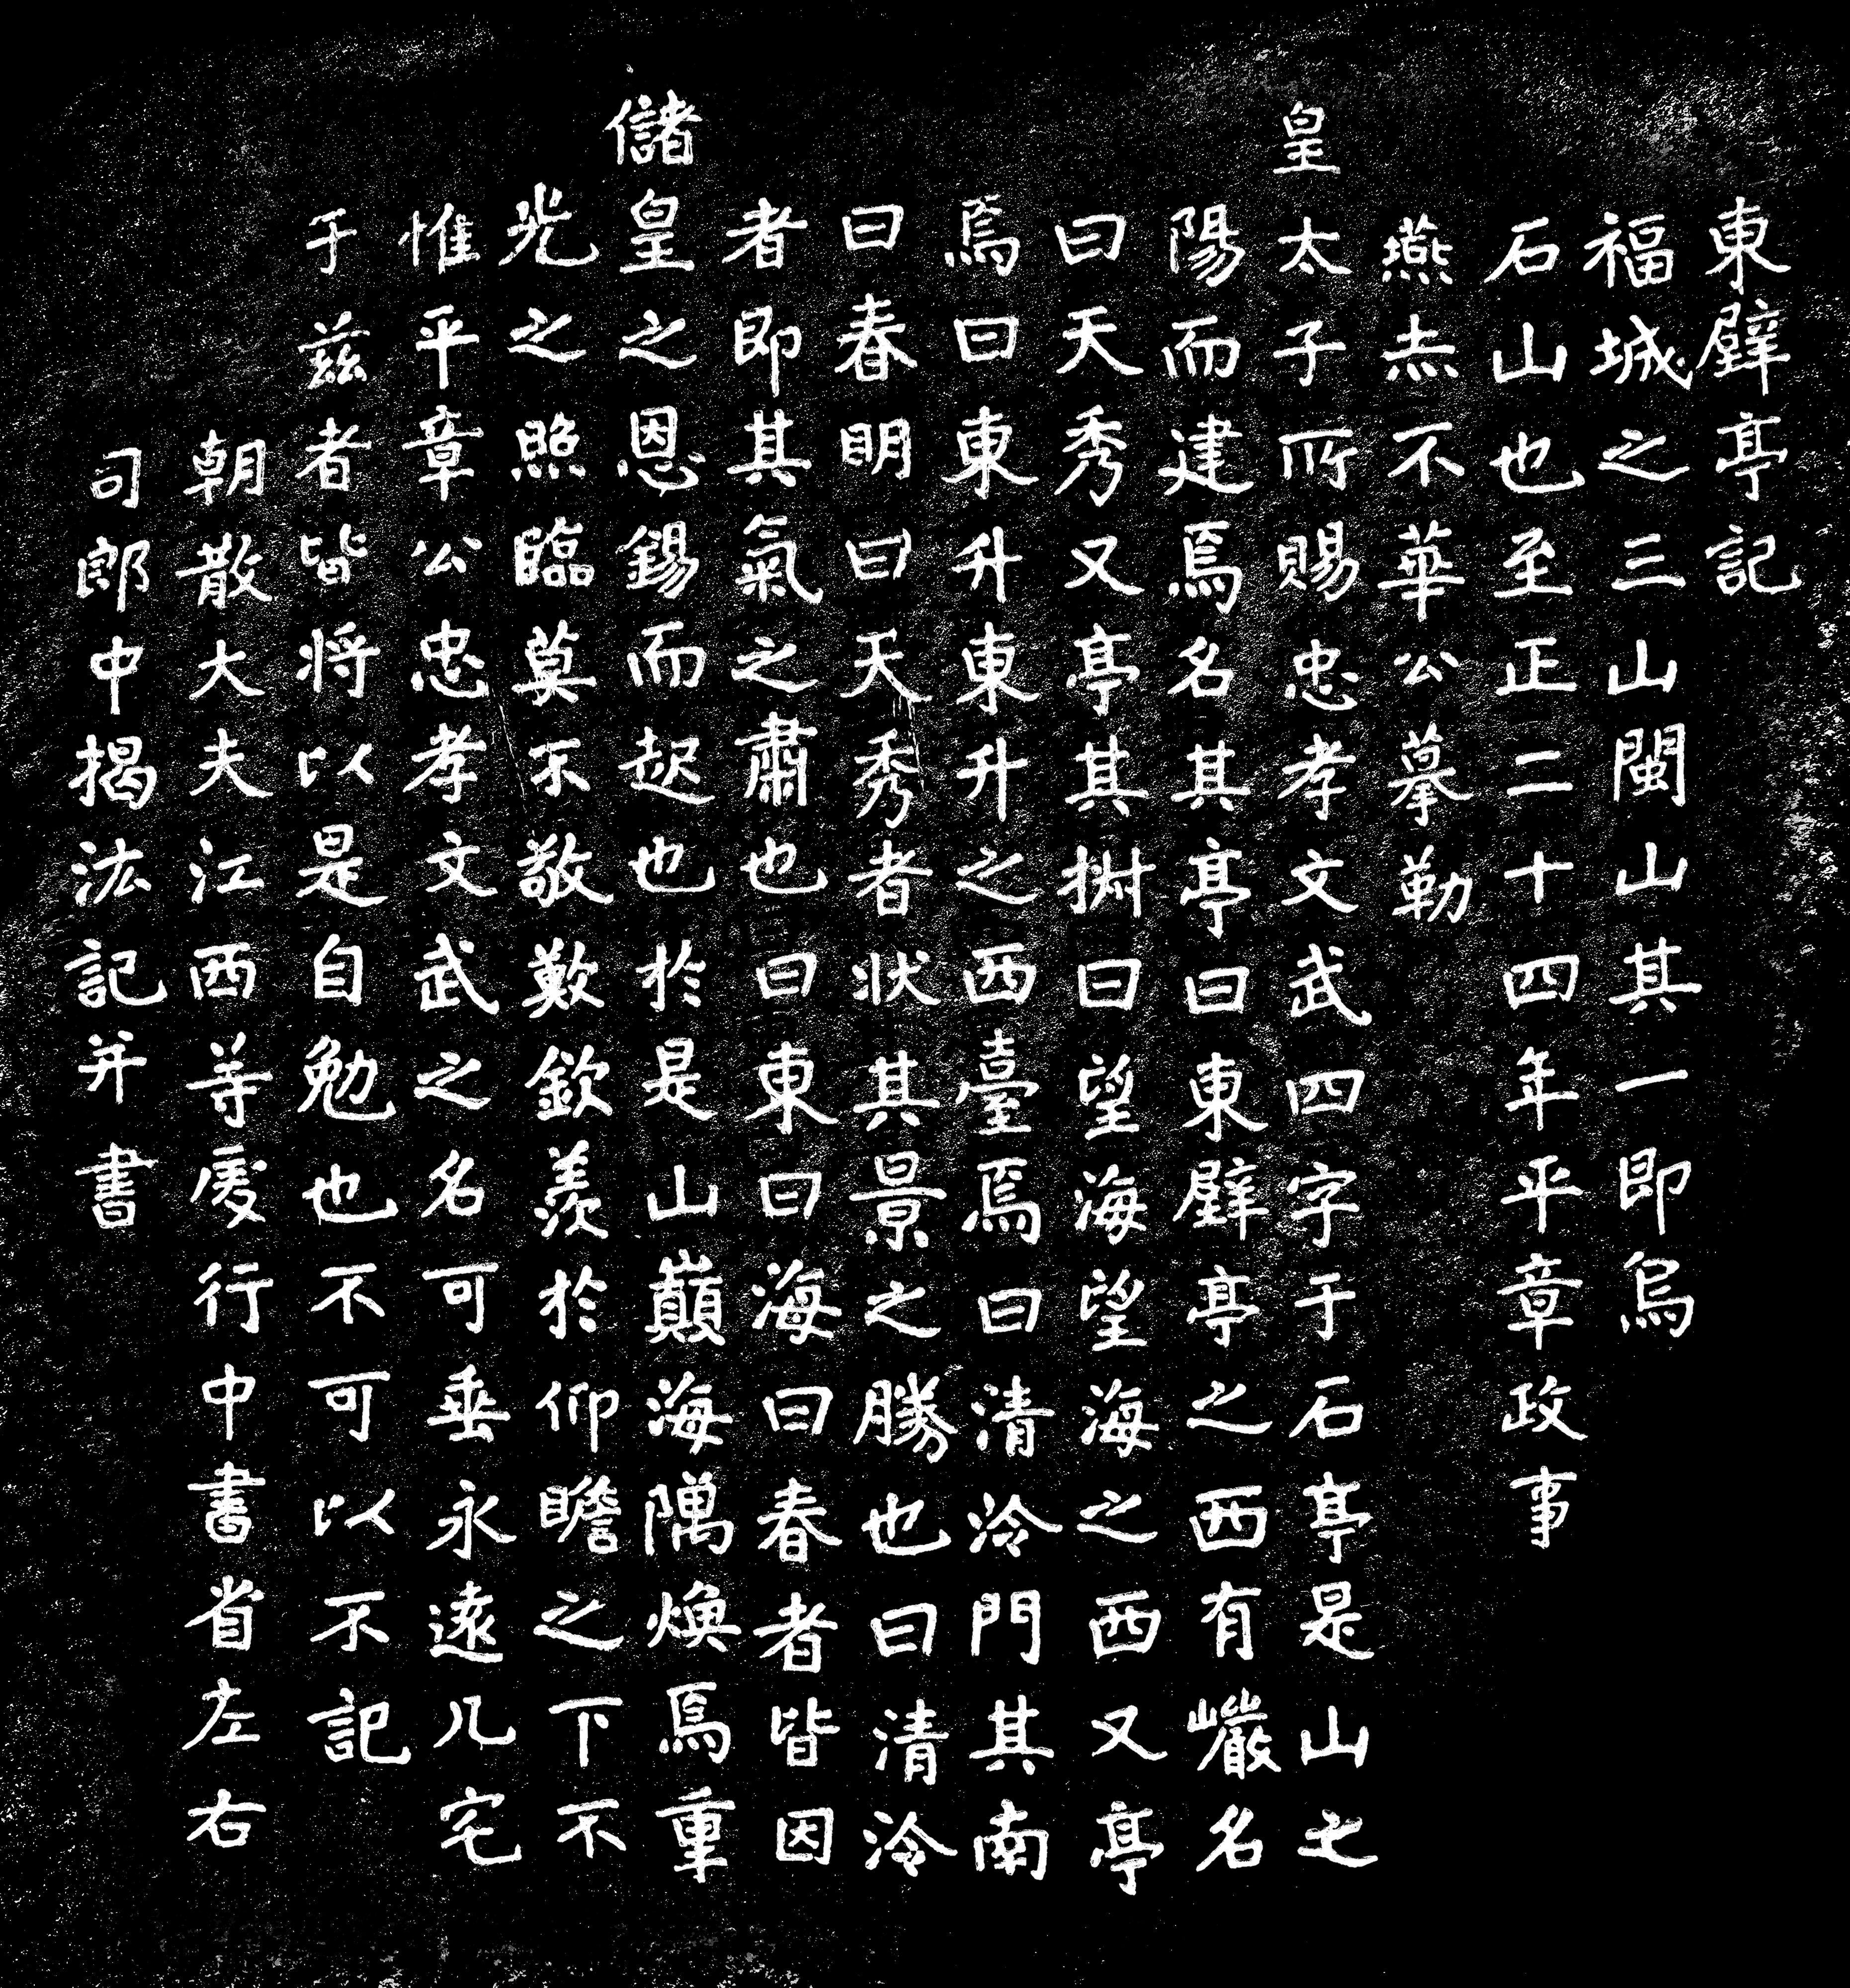 東壁亭記
福城之三山閩山其一即烏
石山也至正二十四年平章政事
燕赤不華公摹勒
皇太子所賜忠孝文武四字于石亭是山之
陽而建焉名其亭曰東壁亭之西有巖名
曰天秀又亭其㭊曰望海望海之西又亭
焉曰東升東升之西臺焉曰清泠門其南
曰春明曰天秀者狀其景之勝也曰清泠
者即其氣之肅也曰東曰海曰春者皆因
儲皇之恩錫而起也於是山巔海隅煥焉重
光之照臨莫不敬歎欽羨於仰瞻之下不
惟平章公忠孝文武之名可垂永遠凡宅
于茲者皆將以是自勉也不可以不記
朝散大夫江西等處行中書省左右
司郎中揭汯記并書